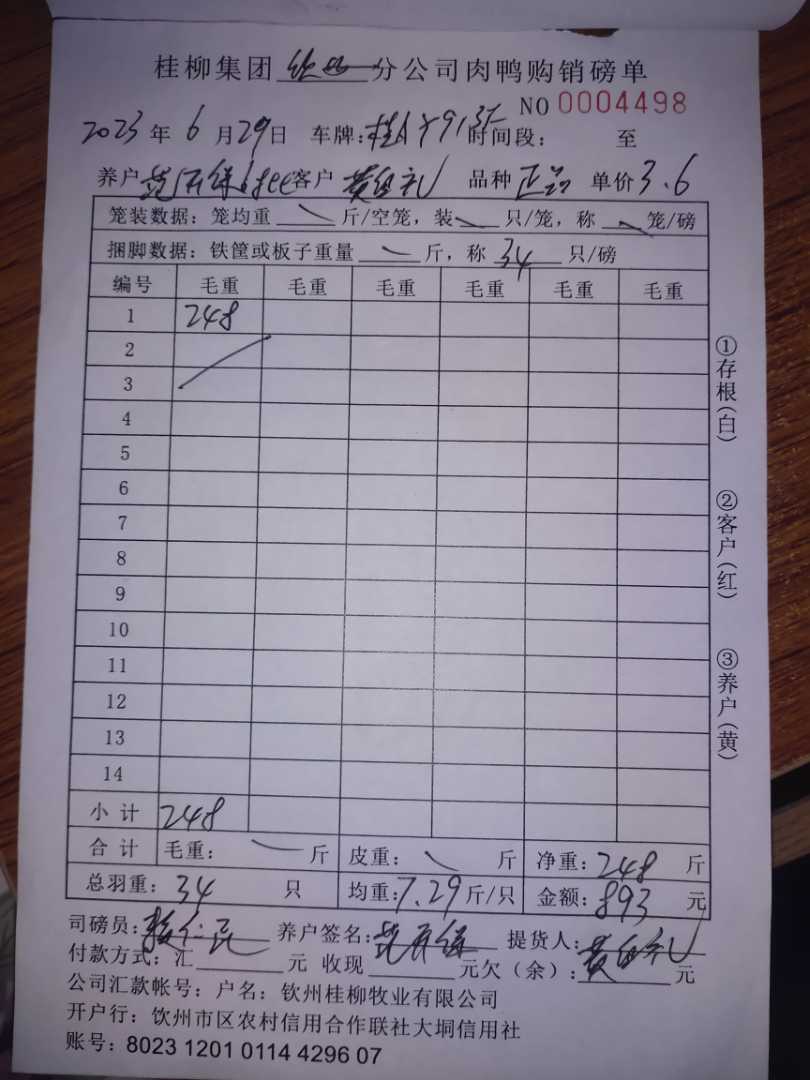 桂柳集团 钦州 分公司肉鸭购销磅单
NO 0004498
2023 年 6 月 29 日 车牌: 时间段: 至
养户 客户 黄 礼 品种 正品 单价 3.6
笼装数据: 笼均重 斤/空笼, 装 只/笼, 称 笼/磅
捆脚数据: 铁筐或板子重量 斤, 称 34 只/磅
编号 毛重 毛重 毛重 毛重 毛重 毛重
1 248
2
3
4
5
6
7
8
9
10
11
12
13
14
小计 248
合计 毛重: 斤 皮重: 斤 净重: 248 斤
总羽重: 34 只 均重: 7.29 斤/只 金额: 893 元
①存根(白)
②客户(红)
③养户(黄)
司磅员: 养户签名: 提货人: 黄 礼
付款方式: 汇 元 收现 元欠(余): 元
公司汇款帐号: 户名: 钦州桂柳牧业有限公司
开户行: 钦州市区农村信用合作联社大垌信用社
账号: 8023 1201 0114 4296 07